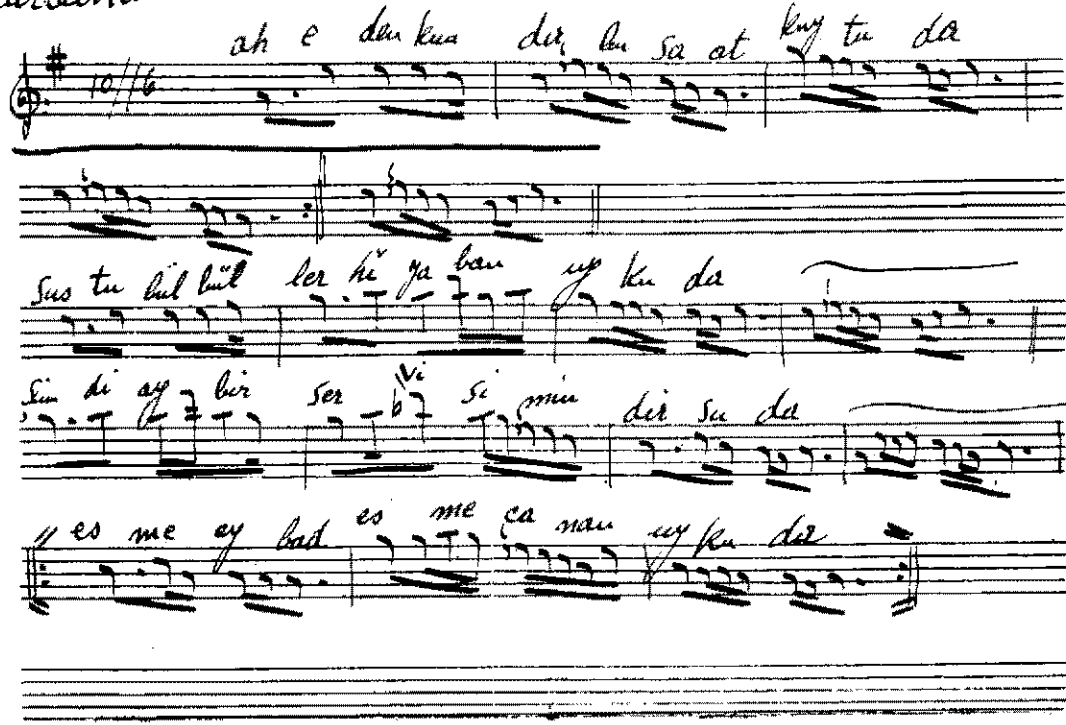 ah e den kua dir bu sa at kuy tu da
10//16
sus tu bül bül ler hi ya ban uy ku da
Sim di ay bir ser vi si min dir su da
es me ey bad es me ca nan uy ku da